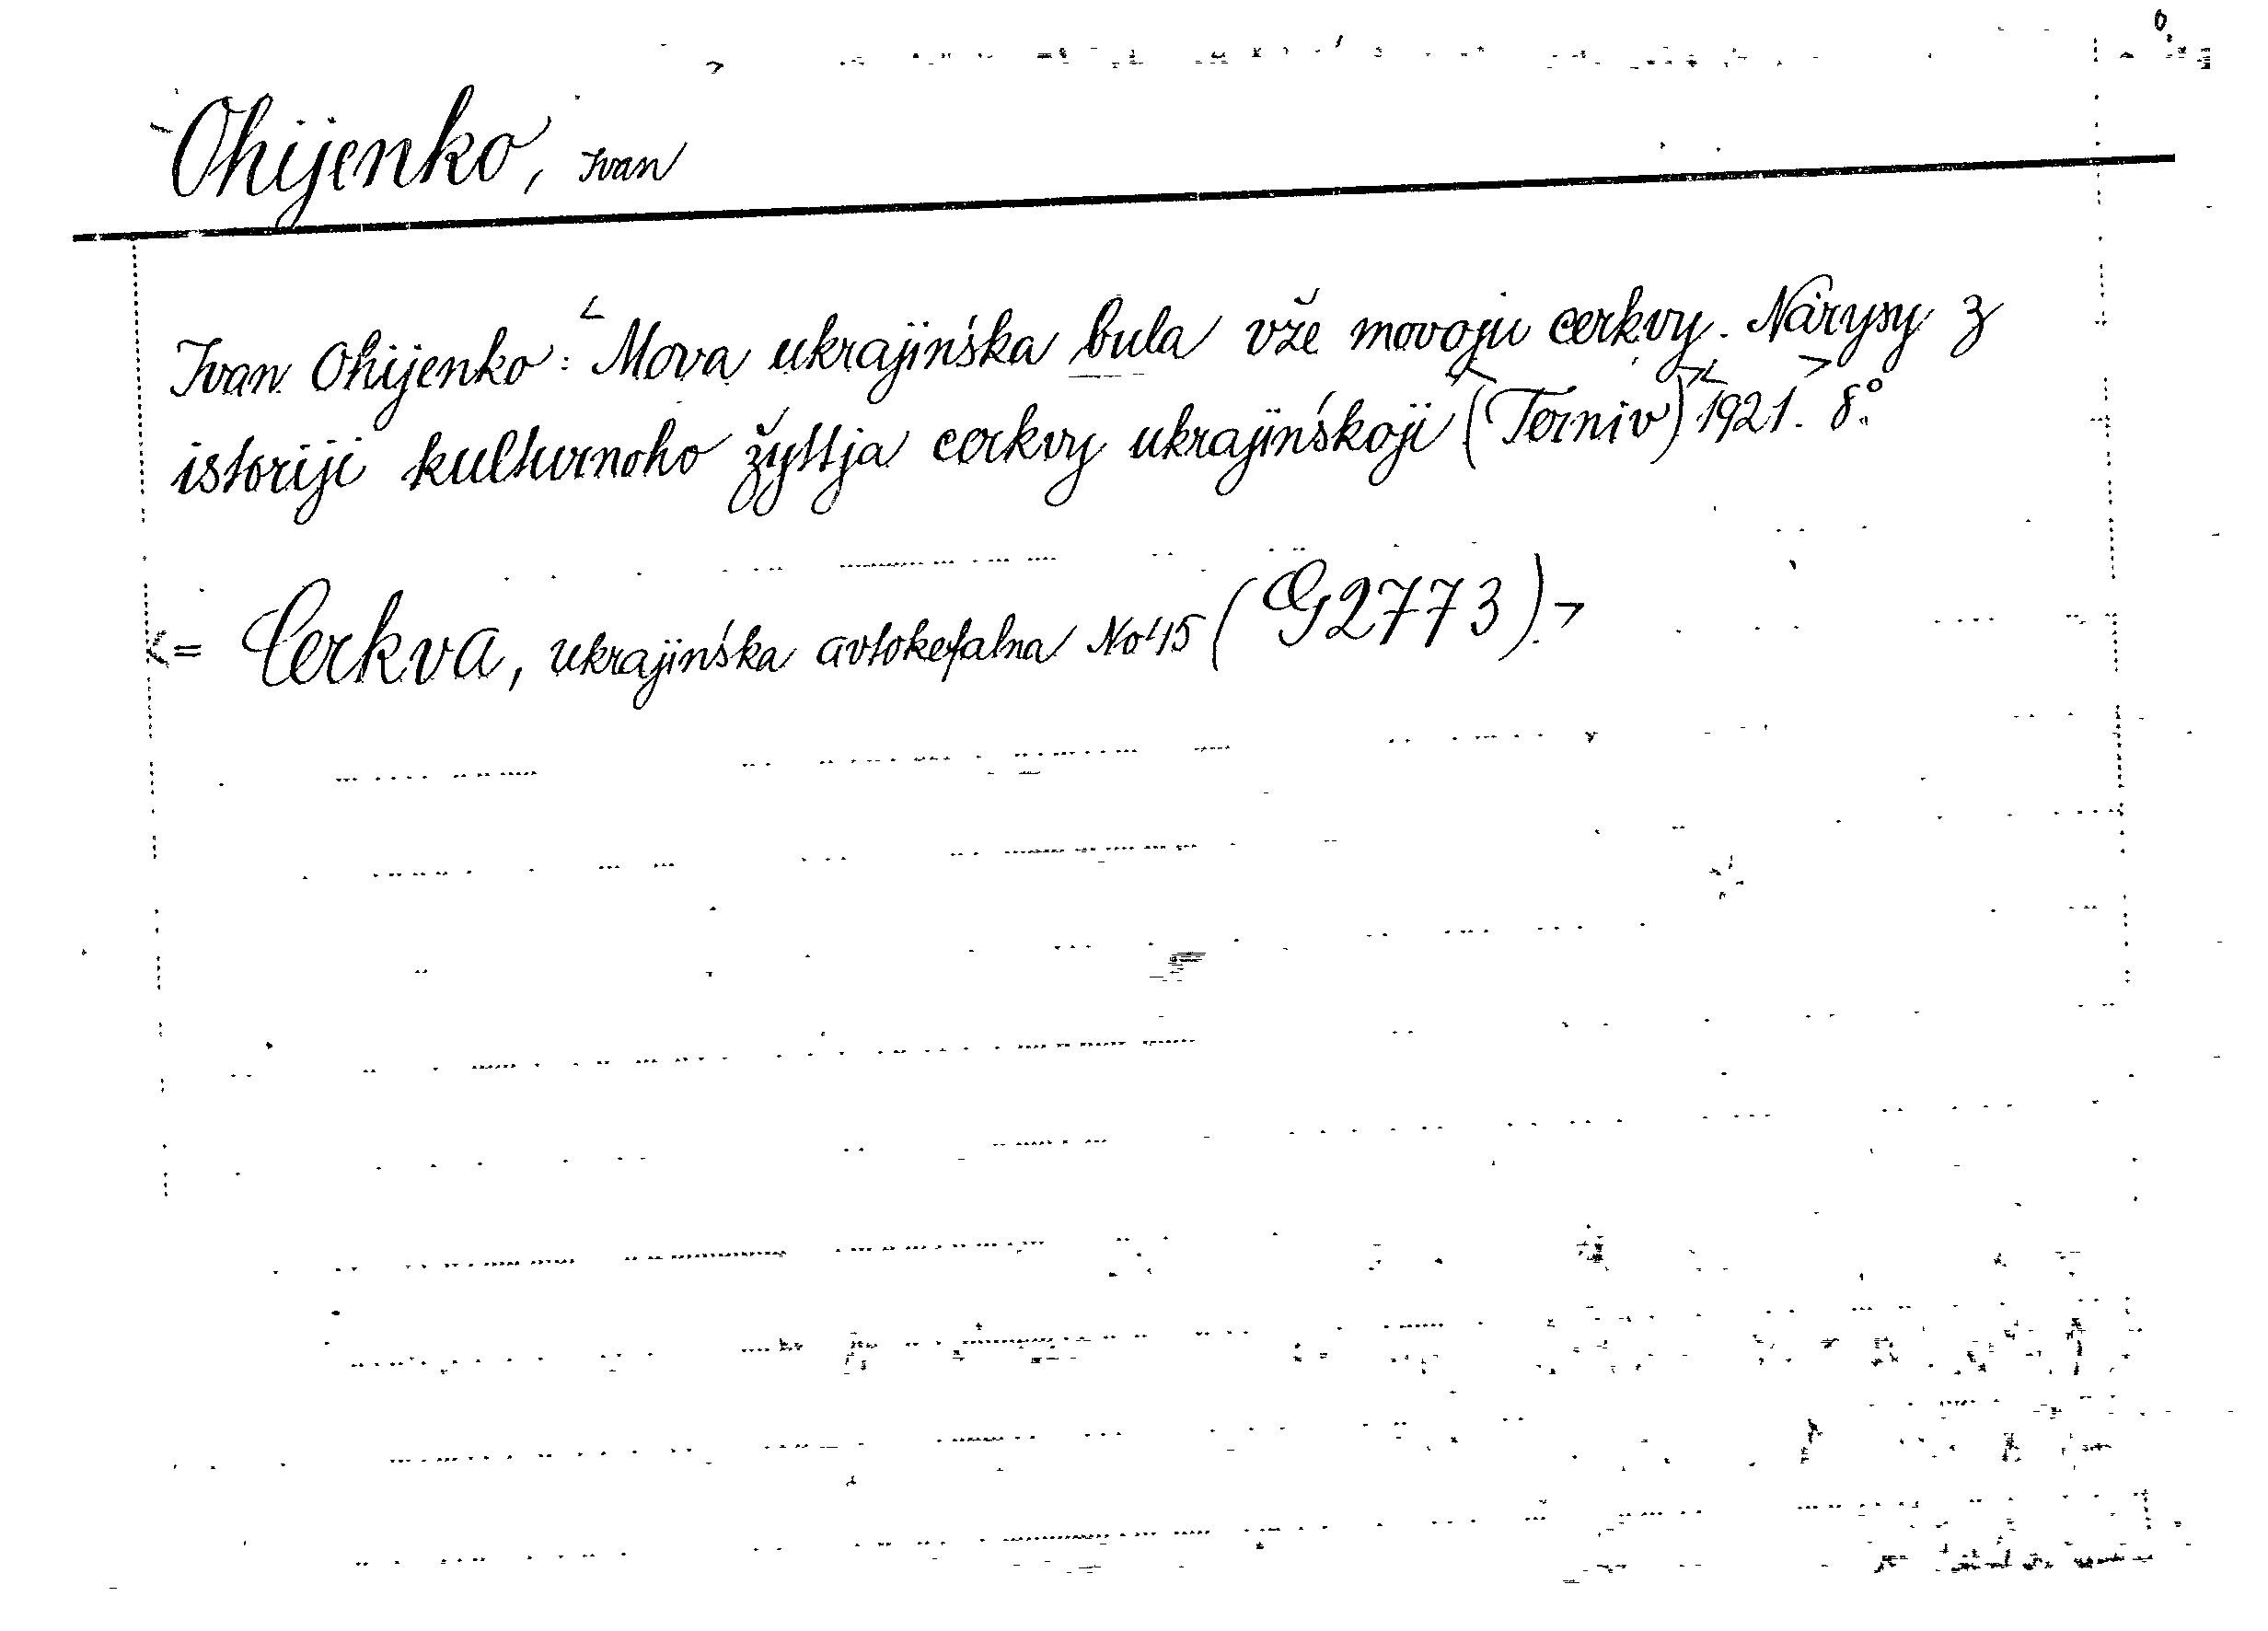 Ohijenko, Ivan
Ivan Ohijenko: <Mova ukrajinśka bula vže movoju cerkvy. Narysy z
istoriji kulturnoho žyttja cerkvy ukrajinśkoji <(Terniv)> <1921.> 8°.
<= Cerkva, ukrajinśka avtokefalna No 45 (G2773).>